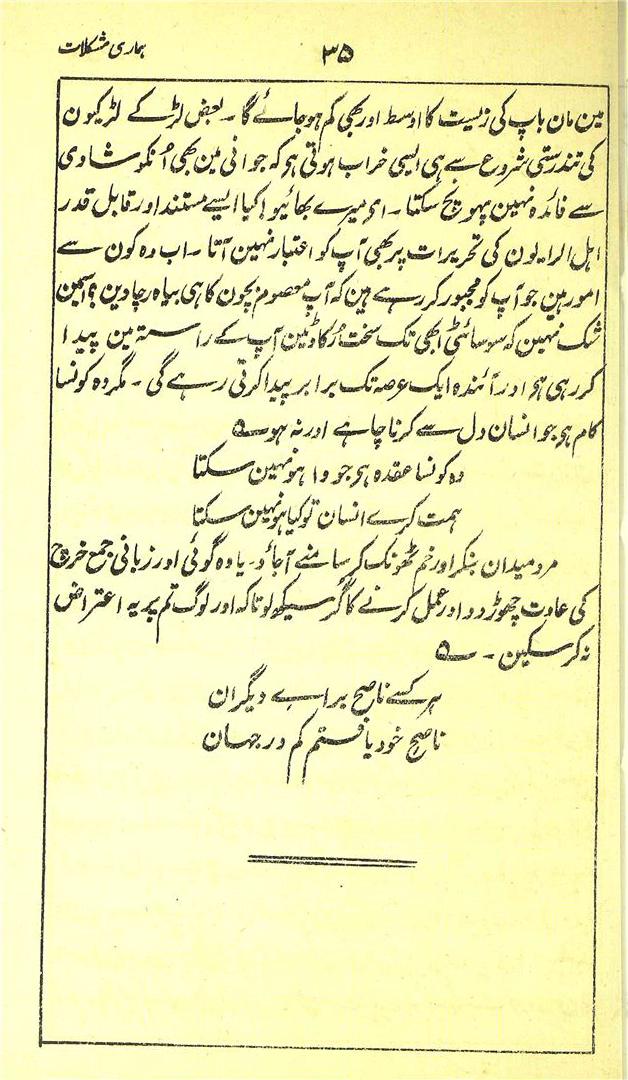 ہماری مشکلات
۳۵
مین مان باپ کی زیست کا اوسط اور بھی کم ہوجائے گا۔ بعض لڑکے لڑکیون
کی تندرستی شروع سے ہی ایسی خراب ہوتی ہی کہ جوانی مین بھی اُنکو شادی
سے فائدہ نہین پہونچ سکتا۔ ای میرے بھائیو! کیا ایسے مستند اور قابل قدر
اہل الرایون کی تحریرات پر بھی آپ کو اعتبار نہین آتا۔ اب وہ کون سے
امور ہین جو آپ کو مجبور کر رہے ہین کہ آپ معصوم بچون کا ہی بیاہ رچادین؟ اسمین
شک نہین کہ سوسائٹی ابھی تک سخت رُکاوٹین آپ کے راستہ مین پیدا
کر رہی ہو اور آئندہ ایک عرصہ تک برابر پیدا کرتی رہے گی۔ مگر وہ کونسا
کام ہو جو انسان دل سے کرنا چاہے اور نہ ہو ؎
وہ کونسا عقدہ ہو جو وا ہو نہین سکتا
ہمت کرے انسان تو کیا ہو نہین سکتا
مرد میدان بنکر اور خم ٹھونک کر سامنے آجاؤ۔ یاوہ گوئی اور زبانی جمع خرچ
کی عادت چھوڑ دو اور عمل کرنے کا گُر سیکھ لو تاکہ اور لوگ تم پر یہ اعتراض
نہ کر سکین۔ ؎
ہر کسے ناصح براے دیگران
ناصح خود یافتم کم در جہان